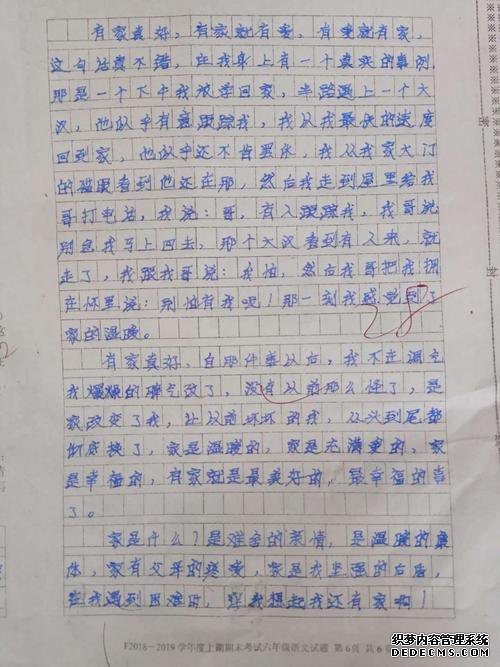 有家真好,有家就有爱,有爱就有家,
这句话真不错,在我身上有一个真实的事例,
那是一个下午我放学回家,半路遇上一个大
汉,他似乎有意跟踪我,我以我最快的速度
回到家,他似乎还不肯罢休,我从我家大门
的猫眼看到他还在那,然后我走到屋里给我
哥打电话,我说:哥,有人跟踪我,我哥说
别急我马上回去,那个大汉看到有人来,就
走了,我跟我哥说:我怕,然后我哥把我拥
在怀里说:别怕有我呢!那一刻我感觉到了
家的温暖。
28
有家真好,自那件事以后,我不在调皮
我 的脾气改了,没有以前那么怪了,是
家改变了我,让以前坏坏的我,从头到尾都
彻底换了,家是温暖的,家是充满爱的,家
是幸福的,有家就是最美好的,最幸福的
了。
家是什么?是难舍的亲情,是温暖的
体,家有父母的疼爱,家是我坚强的后盾,
在我遇到困难时, 我想起我还有家啊!
F2018-2019学年度上期期末考试六年级语文试题 第6页 共6
织梦内容管理系统
DEDECMS.COM